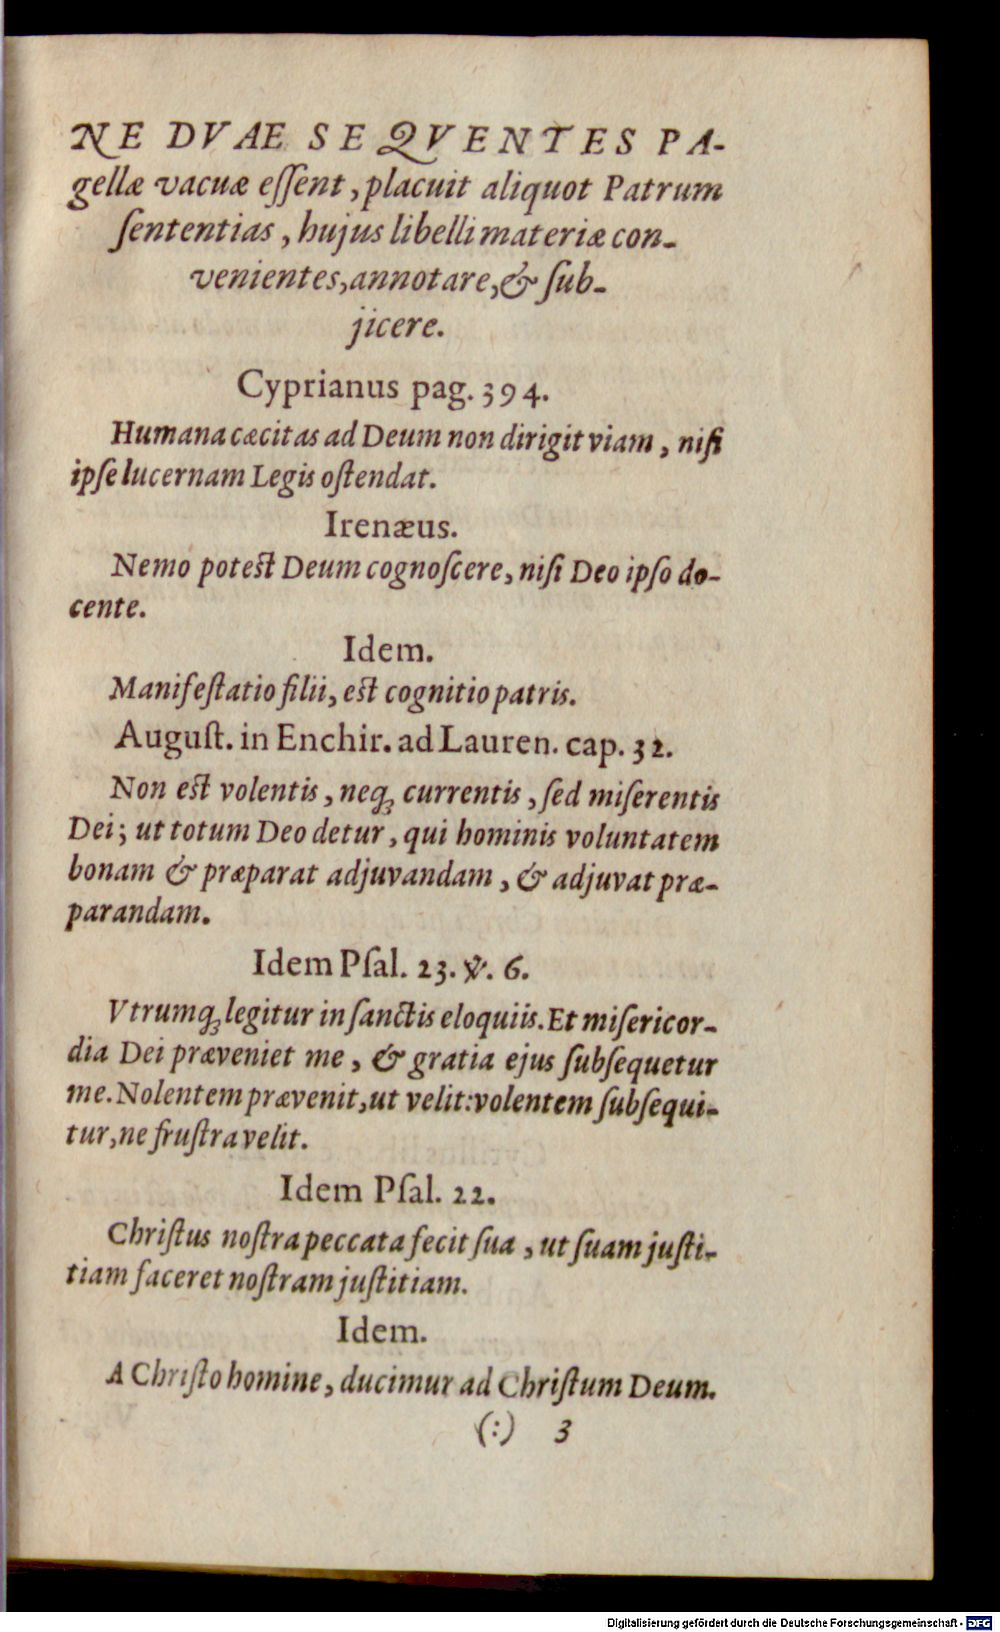 NE DVAE SEQVENTES PA-
gellæ vacuæ eſſent, placuit aliquot Patrum
ſententias, hujus libelli materiæ con-
venientes, annotare, & ſub-
jicere.
Cyprianus pag. 394.
Humana cæcitas ad Deum non dirigit viam, niſi
ipſe lucernam Legis oſtendat.
Irenæus.
Nemo poteſt Deum cognoſcere, niſi Deo ipſo do-
cente.
Idem.
Manifeſtatio filii, eſt cognitio patris.
Auguſt. in Enchir. ad Lauren. cap. 32.
Non eſt volentis, neqꝫ currentis, ſed miſerentis
Dei; ut totum Deo detur, qui hominis voluntatem
bonam & præparat adjuvandam, & adjuvat præ-
parandam.
Idem Pſal. 23. ℣. 6.
Vtrumqꝫ legitur in ſanctis eloquiis. Et miſericor-
dia Dei præveniet me, & gratia ejus ſubſequetur
me. Nolentem prævenit, ut velit: volentem ſubſequi-
tur, ne fruſtra velit.
Idem Pſal. 22.
Chriſtus noſtra peccata fecit ſua, ut ſuam juſti-
tiam faceret noſtram juſtitiam.
Idem.
A Chriſto homine, ducimur ad Chriſtum Deum.
(:) 3
Digitalisierung gefördert durch die Deutsche Forschungsgemeinschaft - DFG